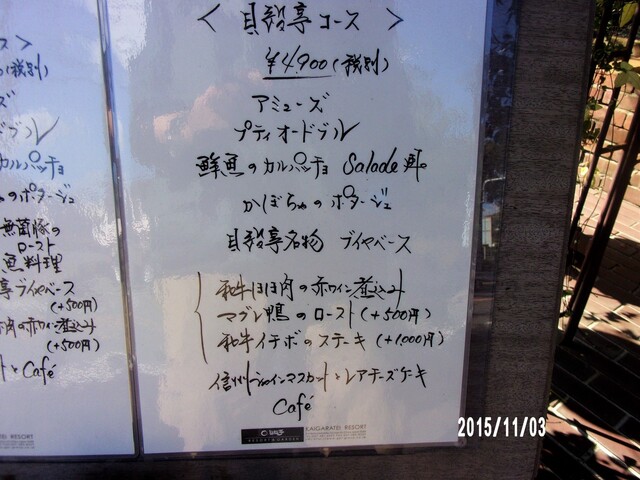 ス>
(税別)
ズ
ドブル
カルパッチョ
のポタージュ
無菌豚の
ロースト
魚料理
亭ブイヤベース
(+500円)
肉の赤ワイン煮込み
(+500円)
とCafé
<貝殻亭コース>
¥4,900(税別)
アミューズ
プティオードブル
鮮魚のカルパッチョ Salade 風。
かぼちゃのポタージュ
貝殻亭名物 ブイヤベース
和牛ほほ肉の赤ワイン煮込み
マグレ鴨のロースト(+500円)
和牛イチボのステーキ(+1,000円)
信州シャインマスカットとレアチーズケーキ
Café
KAIGARATEI RESORT
KAIGARATEI RESORT
2015/11/03